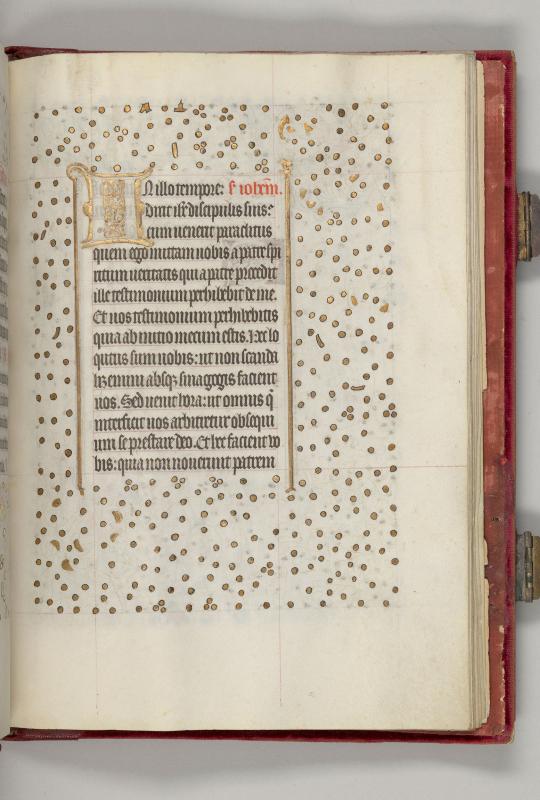 IN illo tempore: s' ioh'em.
dixit ih's discipulis suis:
cum uenerit paraclitus
quem ego mittam uobis a patre spi
ritum ueritatis qui a patre procedit
ille testimonium perhibebit de me.
Et uos testimonium perhibebitis
quia ab initio mecum estis. Hec lo
qutus sum uobis: ut non scanda
lizemini absq3 sinagogis facient
uos. Sed uenit hora: ut omnis q̄
interficit uos arbitretur obsequi
um se prestare deo. Et hec facient uo
bis: quia non nouerunt patrem